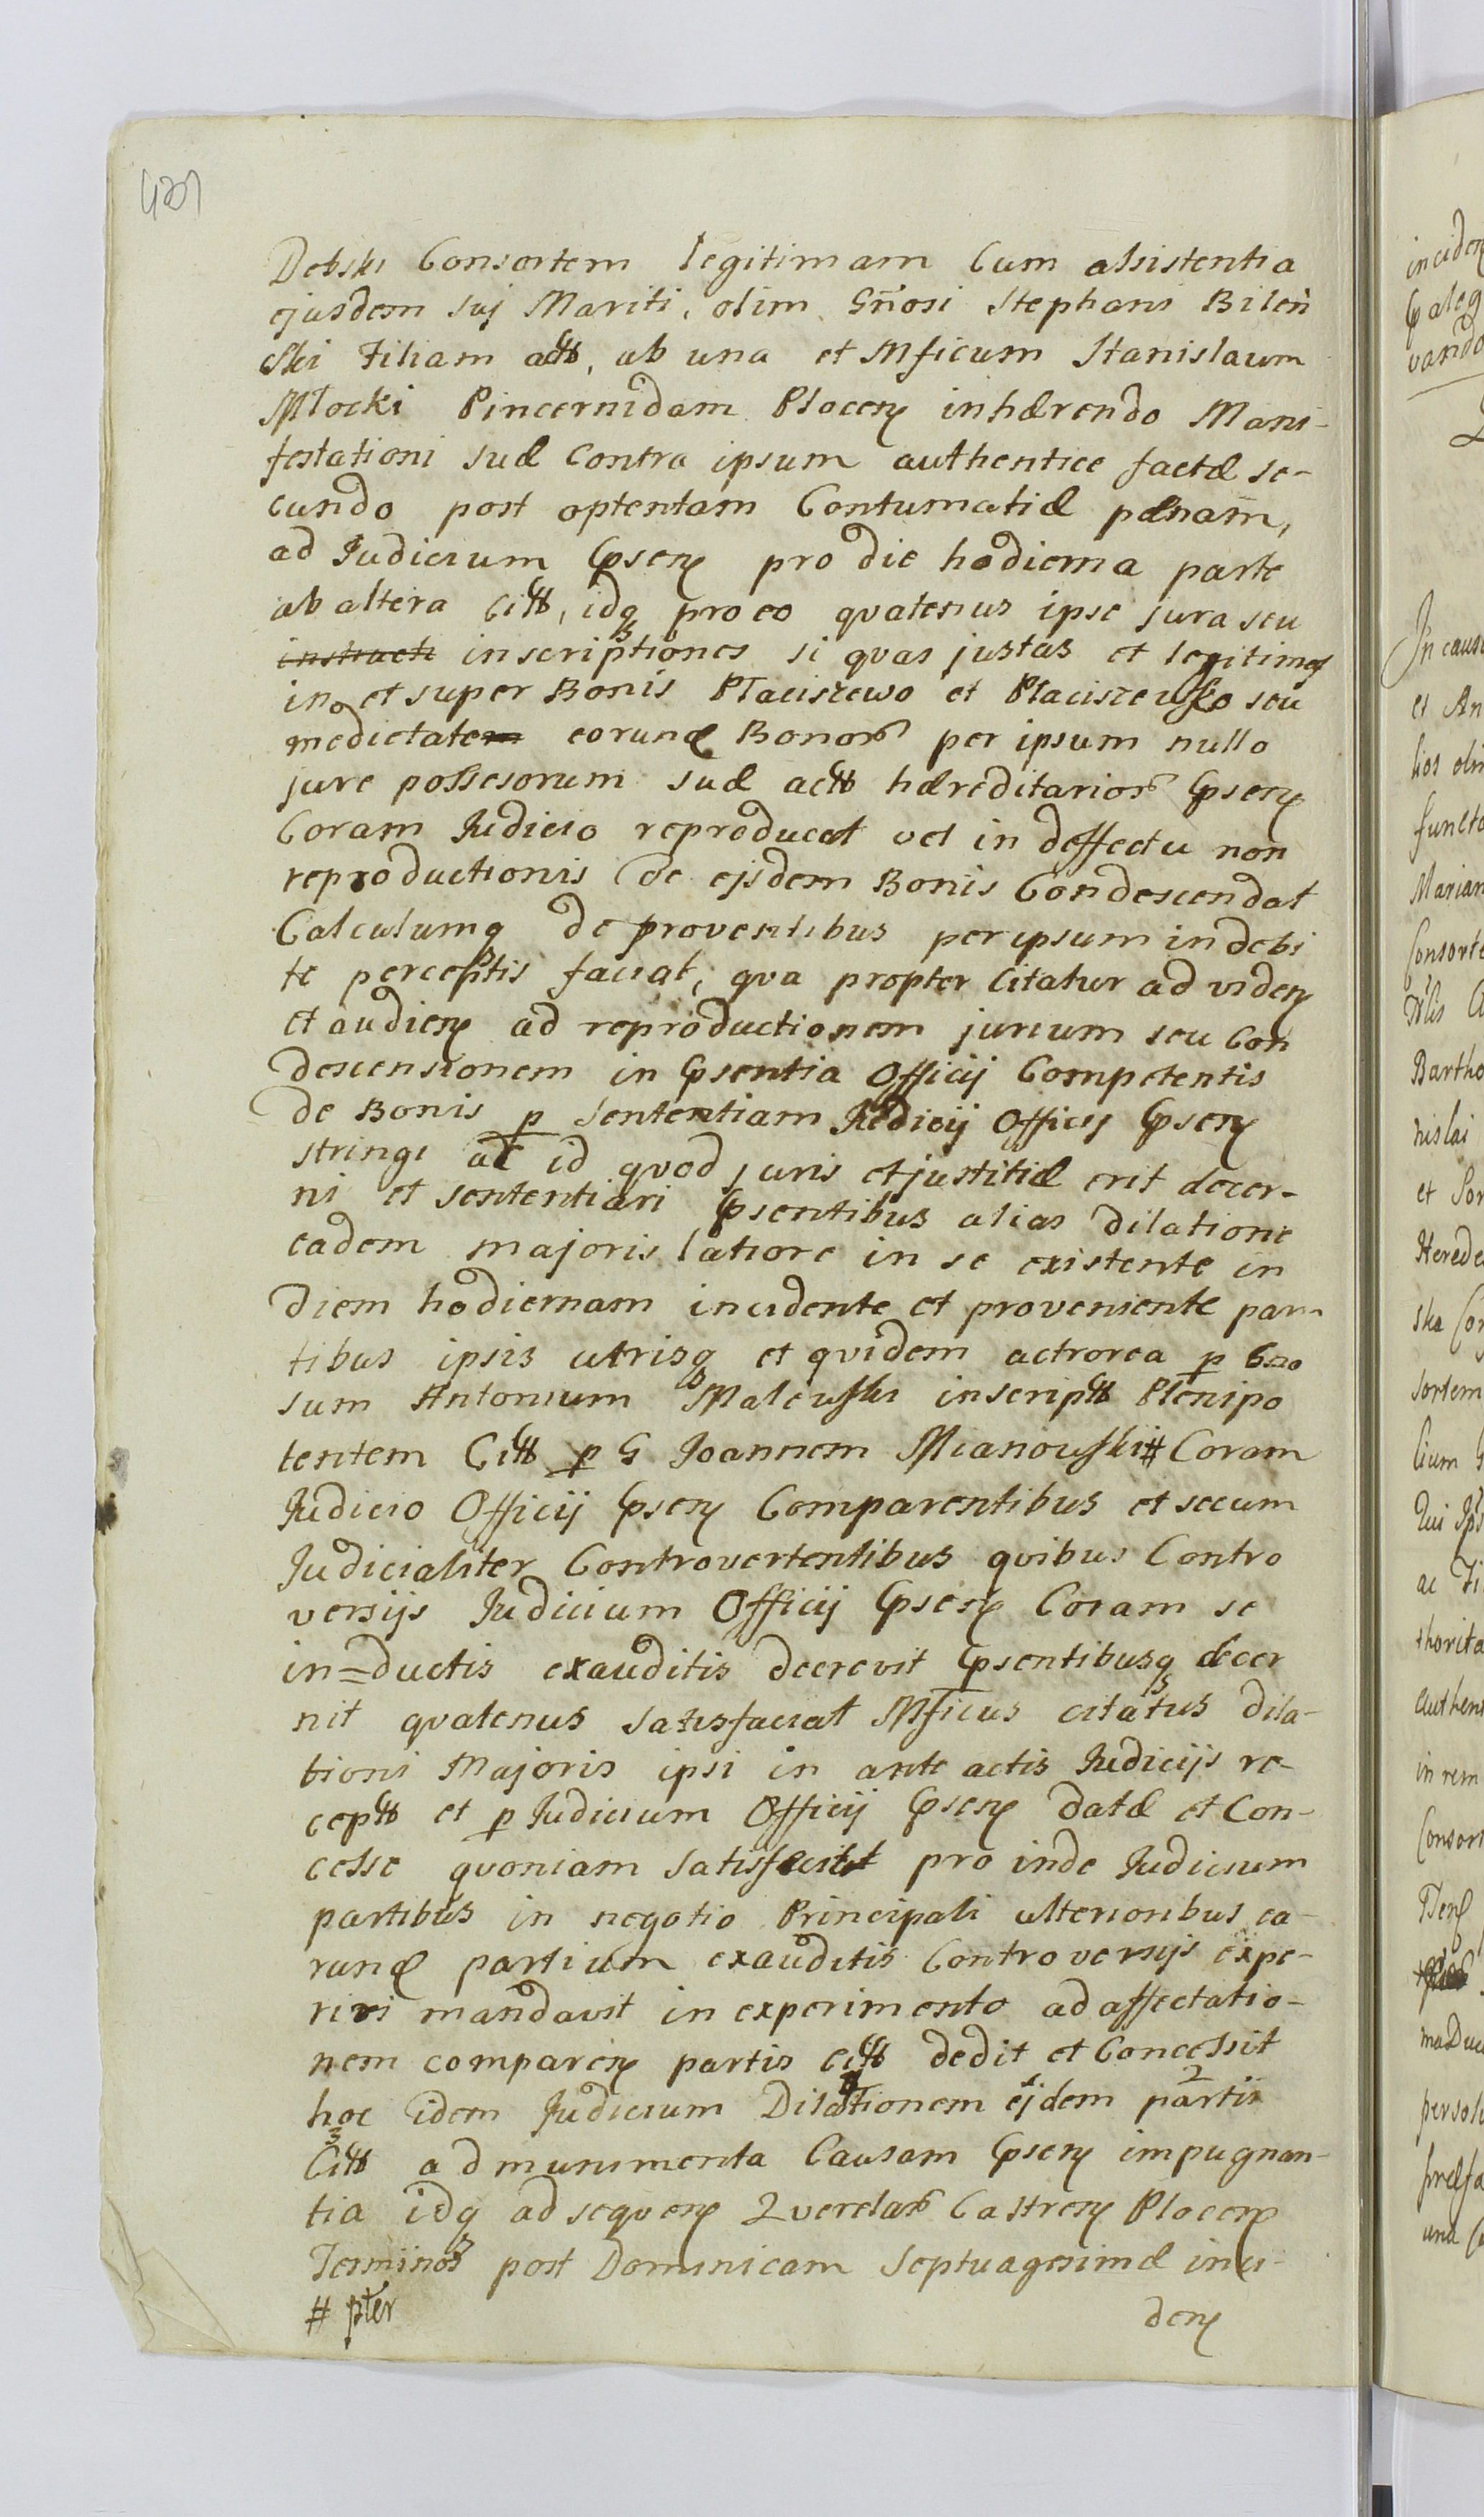 Debski Consortem legitimam Cum assistentia
ejusdem suj Mariti, olim Gñosi Stephani Bileń
ski Filiam actt, ab una et Mficum Stanislaum
Młocki Pincernidam Plocen inhærendo Mani-
festationi suæ Contra ipsum authentice factæ se-
cundo post optentam Contumatiæ pænam,
ad Judicium Psens pro die hodierna parte
ab altera Citt, idq pro eo quatenus ipse jura seu
instructi inscriptiones si quas justas et legitimas
in et super Bonis Płaciszewo et Płaciszewsko seu
medietatem eorund Bonor per ipsum nullo
jure possesorum suæ actt hæreditarior Psens
Coram Judicio reproducat vel in deffectu non
reproductionis de ejsdem Bonis Condescendat
Calculumq de proventibus per ipsum indebi
te perceptis faciat, qva propter Citatur ad viden
et audien ad reproductionem jurium seu Con
descensionem in Psentia Officij Competentis
de Bonis p Sententiam Judicij Officij Psens
stringi ac id quod juris et justitiæ erit decer-
ni et sententiari Psentibus alias dilatione
eadem majoris latiore in se existente in
diem hodiernam incidente et proveniente par-
tibus ipsis utrisq et quidem actorea p Gno
sum Antonium Malewski inscriptt Plenipo
tentem Citt p G Joannem Mianowski # Coram
Judicio Officij Psens Comparentibus et secum
Judicialiter Controvertentibus quibus Contro
versijs Judicium Officij Psens Coram se
in=ductis exauditis decrevit Psentibusq decer
nit quatenus Satisfaciat Mficus citatus dila-
tioni Majoris ipsi in ante actis Judicijs re-
ceptt et p Judicium Officij Psens datæ et Con-
cesse quoniam Satisfecit pro inde Judicium
partibus in negotio Principali ulterioribus ea-
rund partium exauditis Controversijs expe-
riri mandavit in experimento ad affectatio-
nem comparen partis Citt dedit et Concessit
hoc idem Judicium Dilationem ejdem partis
Citt ad munimenta Causam Psens impugnan-
tia idq ad sequen Querelar Castren Plocen
Terminos post Dominicam Septuagesimæ inci-
# pter
den